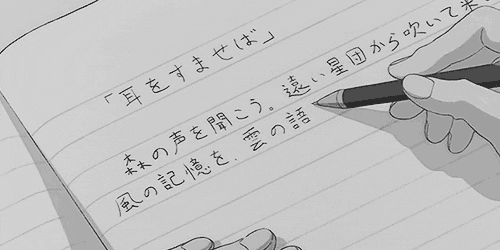 「耳をすませば」
森の声を聞こう。遠い星団から吹いて来
風の記憶を、雲の語